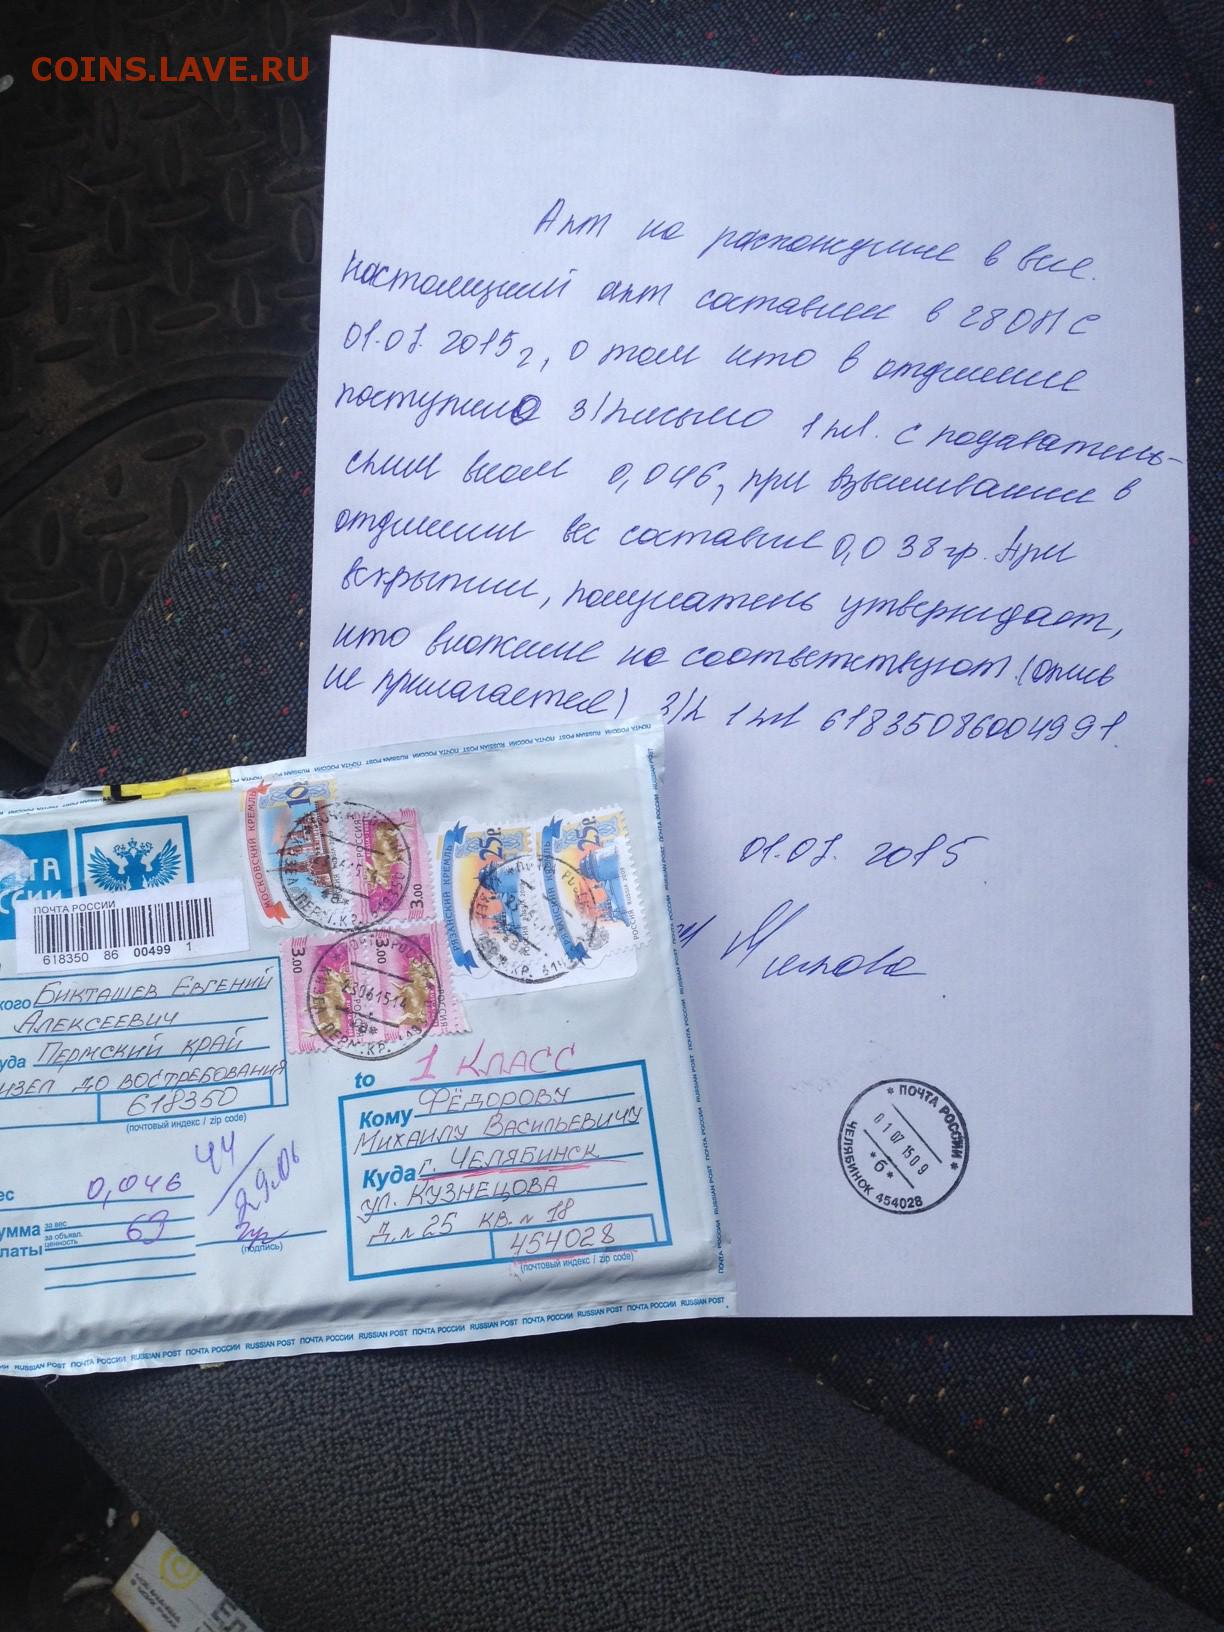 COINS.LAVE.RU
Акт на расхождение в весе.
Настоящий акт составлен в 28 ОПС
01.07.2015г, о том что в отделение
поступило з/письмо 1кл. с подаватель-
ским весом 0,046, при взвешивании в
отделении вес составил 0,038гр. При
вскрытии, получатель утверждает,
что вложение не соответствуют. (опись
не прилагается) з/п 1кл 61835086004991.
01.07.2015
ПОЧТА РОССИИ
01 07 15 09
*б*
ЧЕЛЯБИНСК 454028
ПОЧТА РОССИИ RUSSIAN POST ПОЧТА РОССИИ RUSSIAN POST ПОЧТА РОССИИ
МОСКОВСКИЙ КРЕМЛЬ
3.00
РЯЗАНСКИЙ КРЕМЛЬ
25р.
РЯЗАНСКИЙ КРЕМЛЬ
25р.
3.00
3.00
ПОЧТА РОССИИ
618350 86 00499 1
БИКТАШЕВ ЕВГЕНИЙ
АЛЕКСЕЕВИЧ
ПЕРМСКИЙ КРАЙ
ДО ВОСТРЕБОВАНИЯ
618350
(почтовый индекс / zip code)
0,046
69
за вес
за объявл.
ценность
44
29.06
(подпись)
1 КЛАСС
to
Кому ФЁДОРОВУ
МИХАИЛУ ВАСИЛЬЕВИЧУ
Куда г. ЧЕЛЯБИНСК
УЛ. КУЗНЕЦОВА
Д.№25 КВ.№18
454028
(почтовый индекс / zip code)
RUSSIAN POST ПОЧТА РОССИИ RUSSIAN POST ПОЧТА РОССИИ RUSSIAN POST ПОЧТА РОССИИ RUSSIAN POST